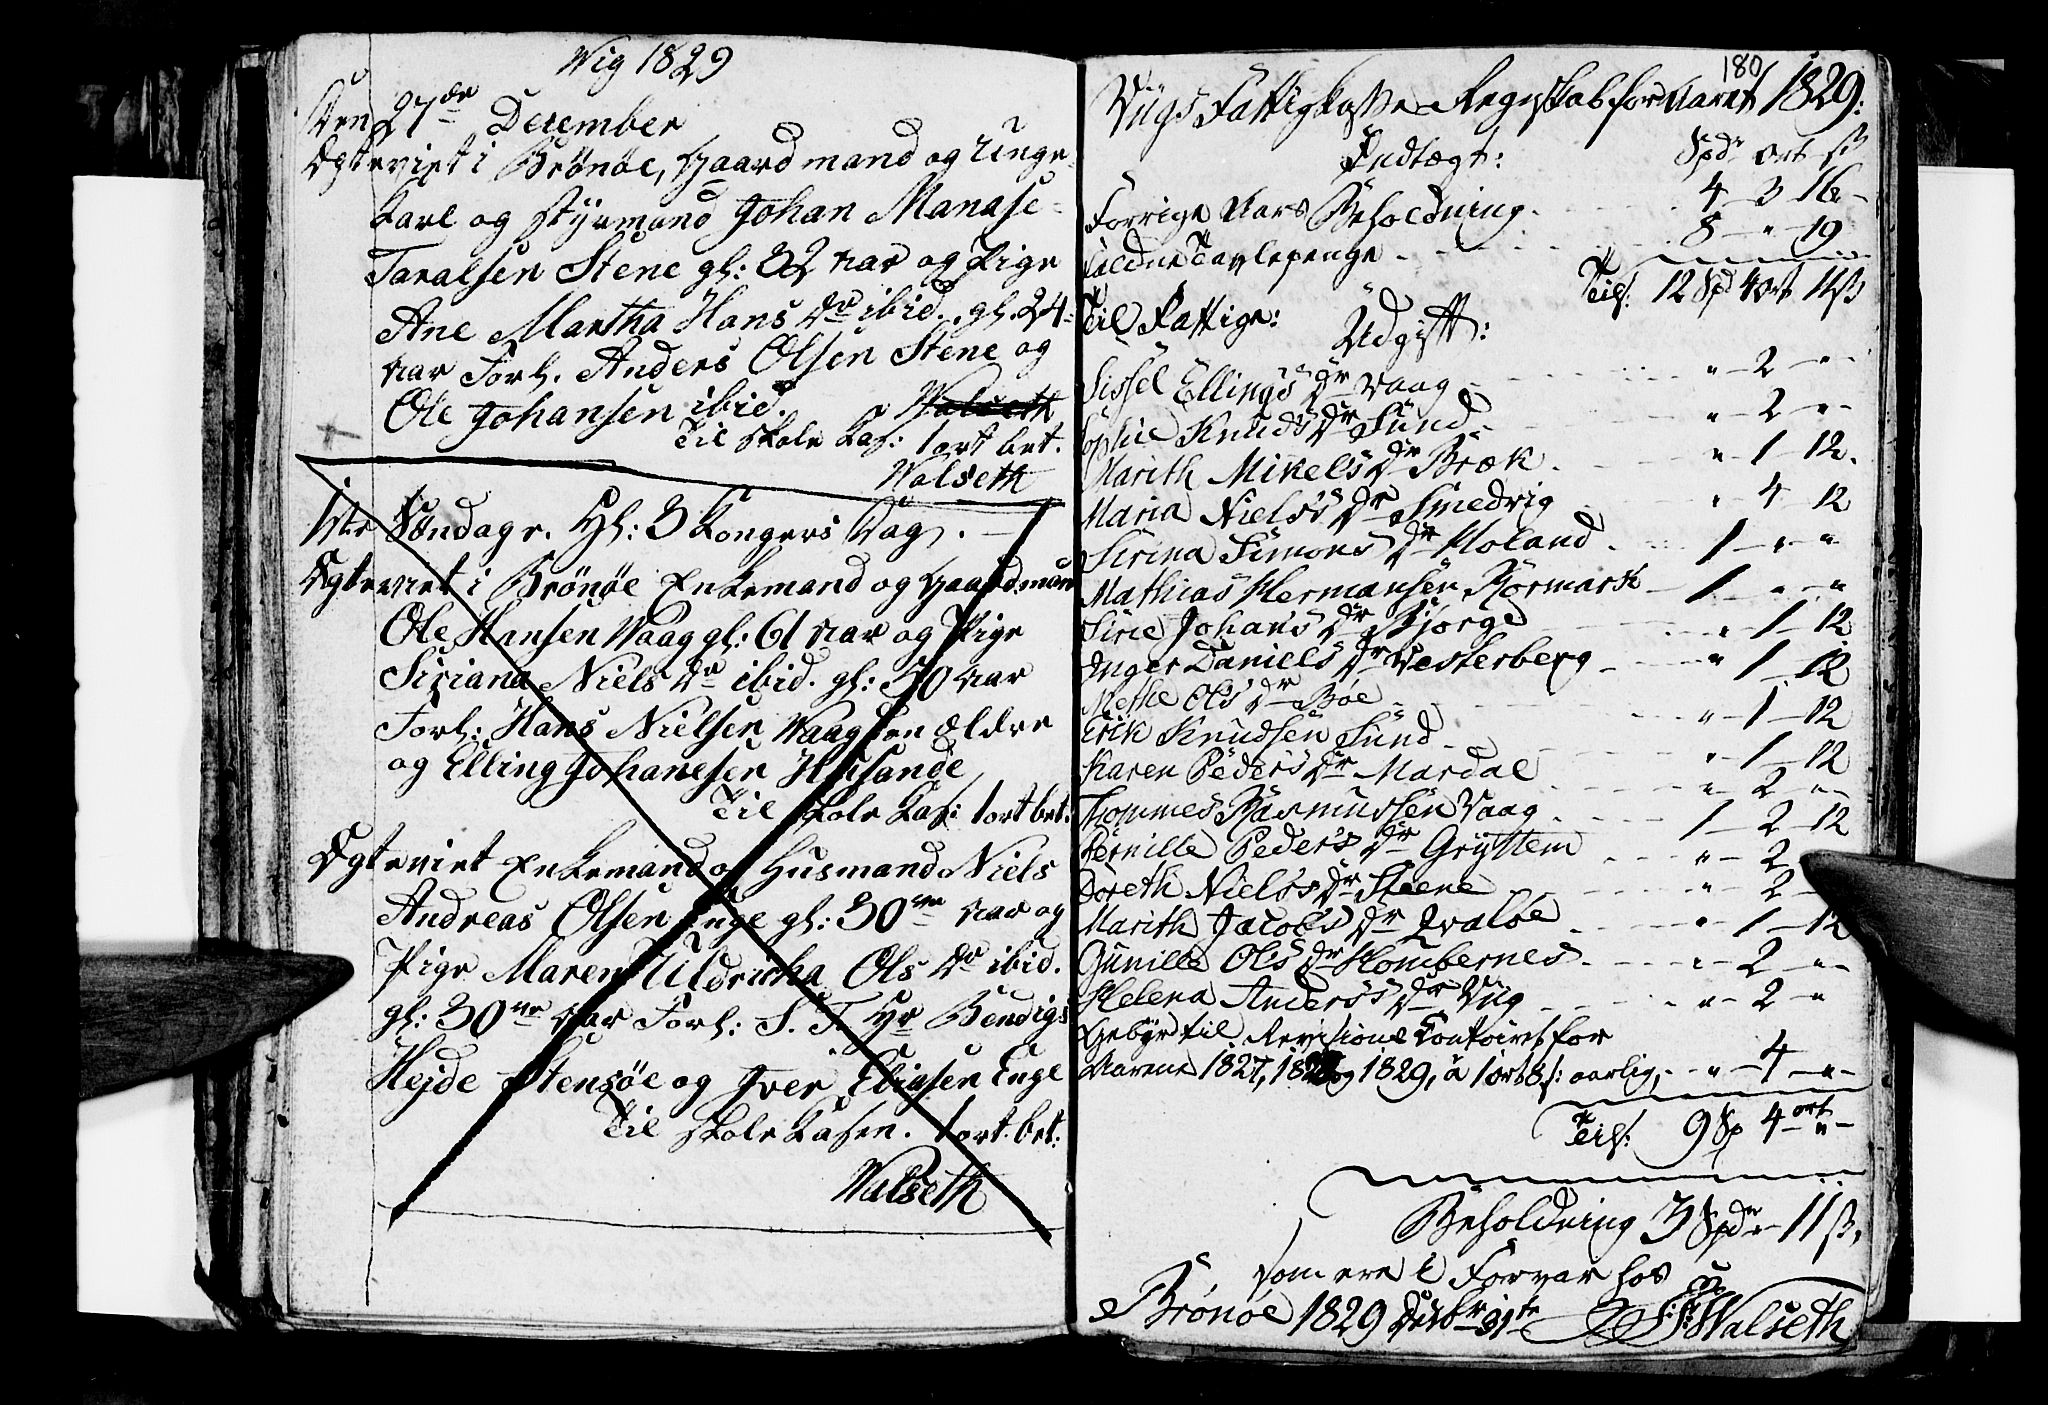 Wig 1829
Den 27de December
Egteviet i Brønøe, Gaardmand og Unge-
karl og Styrmand Johan Manase
Taralsen Stene gl: 32 Aar og Pige
Ane Martha Hans Dr ibid. gl. 24
Aar Forl. Anders Olsen Stene og
Ole Johansen ibid. Walseth
Til Skole Kas: 1 ort bet.
Walseth
1ste Søndag e. Hl: 3 Kongers Dag.
Egteviet i Brønøe Enkemand og Gaardmand
Ole Hansen Waag gl: 61 Aar og Pige
Siriana Niels Dr ibid. gl: 30 Aar
Forl: Hans Nielsen Waag den ældre
og Elling Johanesen
Til Skole Kas: 1 ort bet:
Egteviet Enkemand og Husmand Niels
Andreas Olsen Enge gl: 30 Aar og
Pige Maren Uldricha Ols Dr ibid.
gl: 30 Aar Forl: S. T. Hr Bendigs
Hejde Stensøe og Iver Eliasen Enge
Til Skole Kasen. 1 ort. bet:
Walseth
180
Viigs Fattigkasse Regnskab for Aaret 1829:
Indtægt: Spdr ort ß
Forrige Aars Beholdning 4 - 3 16 -
Faldne Tavlepenge 8 - " - 19
Tils: 12 Spd 4 ort 11 ß
Til Fattige: Udgift:
Sissel Ellings Dr Vaag " - 2 - "
Sophie Knuds Dr Sund " - 2 - "
Marith Mikels Dr Bræk " - 1 - 12
Maria Niels Dr Smedvig " 4 - 12
Sirina Simons Dr Moland 1 - " - "
Mathias Hermansen Kormark 1 - " - "
Sirie Johans Dr Bjørge " 1 - 12
Inger Daniels Dr Vesterberg " 1 - 12
Methe Ols Dr Bøe " - 1 - 12
Erik Knudsen Sund " 1 - 12
Karen Peders Dr Mardal " 2 - "
Thommes Rasmussen Vaag 1 - 2 - 12
Pernille Peders Dr Gryttem " - 2
Doreth Niels Dr Steene " - 2 -
Marith Jacobs Dr Qvaløe " - 1 - 12
Gunille Ols Dr Hombernes " - 2 - "
Helena Anders Dr Viig " - 2 - "
Gebyr til Revisions Contoiret for
Aarene 1827, 1828 og 1829, à 1 ort 8 ß: aarlig, " - 4 - "
Tils: 9 Sp 4 ort "
Beholdning 3 Spdr - 11 ß,
som ere i Forvar hos
Brønøe 1829 Decbr 31te Walseth